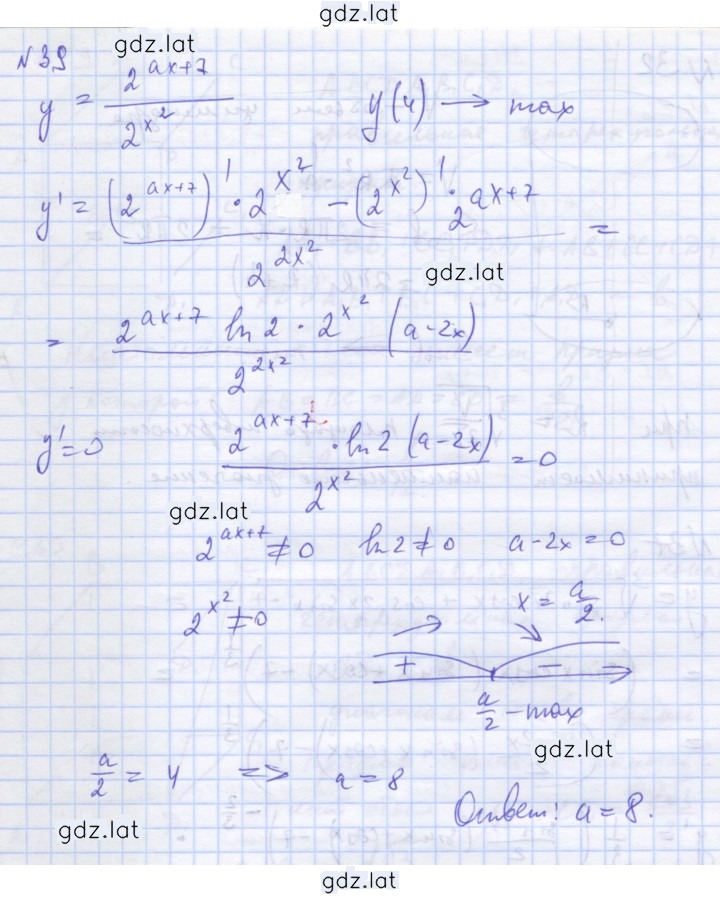 gdz.lat
№ 39
gdz.lat
y = 2^(ax+7) / 2^(x²) y(4) → max
y' = ((2^(ax+7))' · 2^(x²) − (2^(x²))' · 2^(ax+7)) / 2^(2x²) =
gdz.lat
= (2^(ax+7) ln 2 · 2^(x²) (a-2x)) / 2^(2x²)
y' = 0 (2^(ax+7) · ln 2 (a-2x)) / 2^(x²) = 0
gdz.lat
2^(ax+7) ≠ 0 ln 2 ≠ 0 a-2x = 0
2^(x²) ≠ 0 x = a/2.
+ −
a/2 - max
gdz.lat
a/2 = 4 => a = 8
Ответ: a = 8.
gdz.lat
gdz.lat